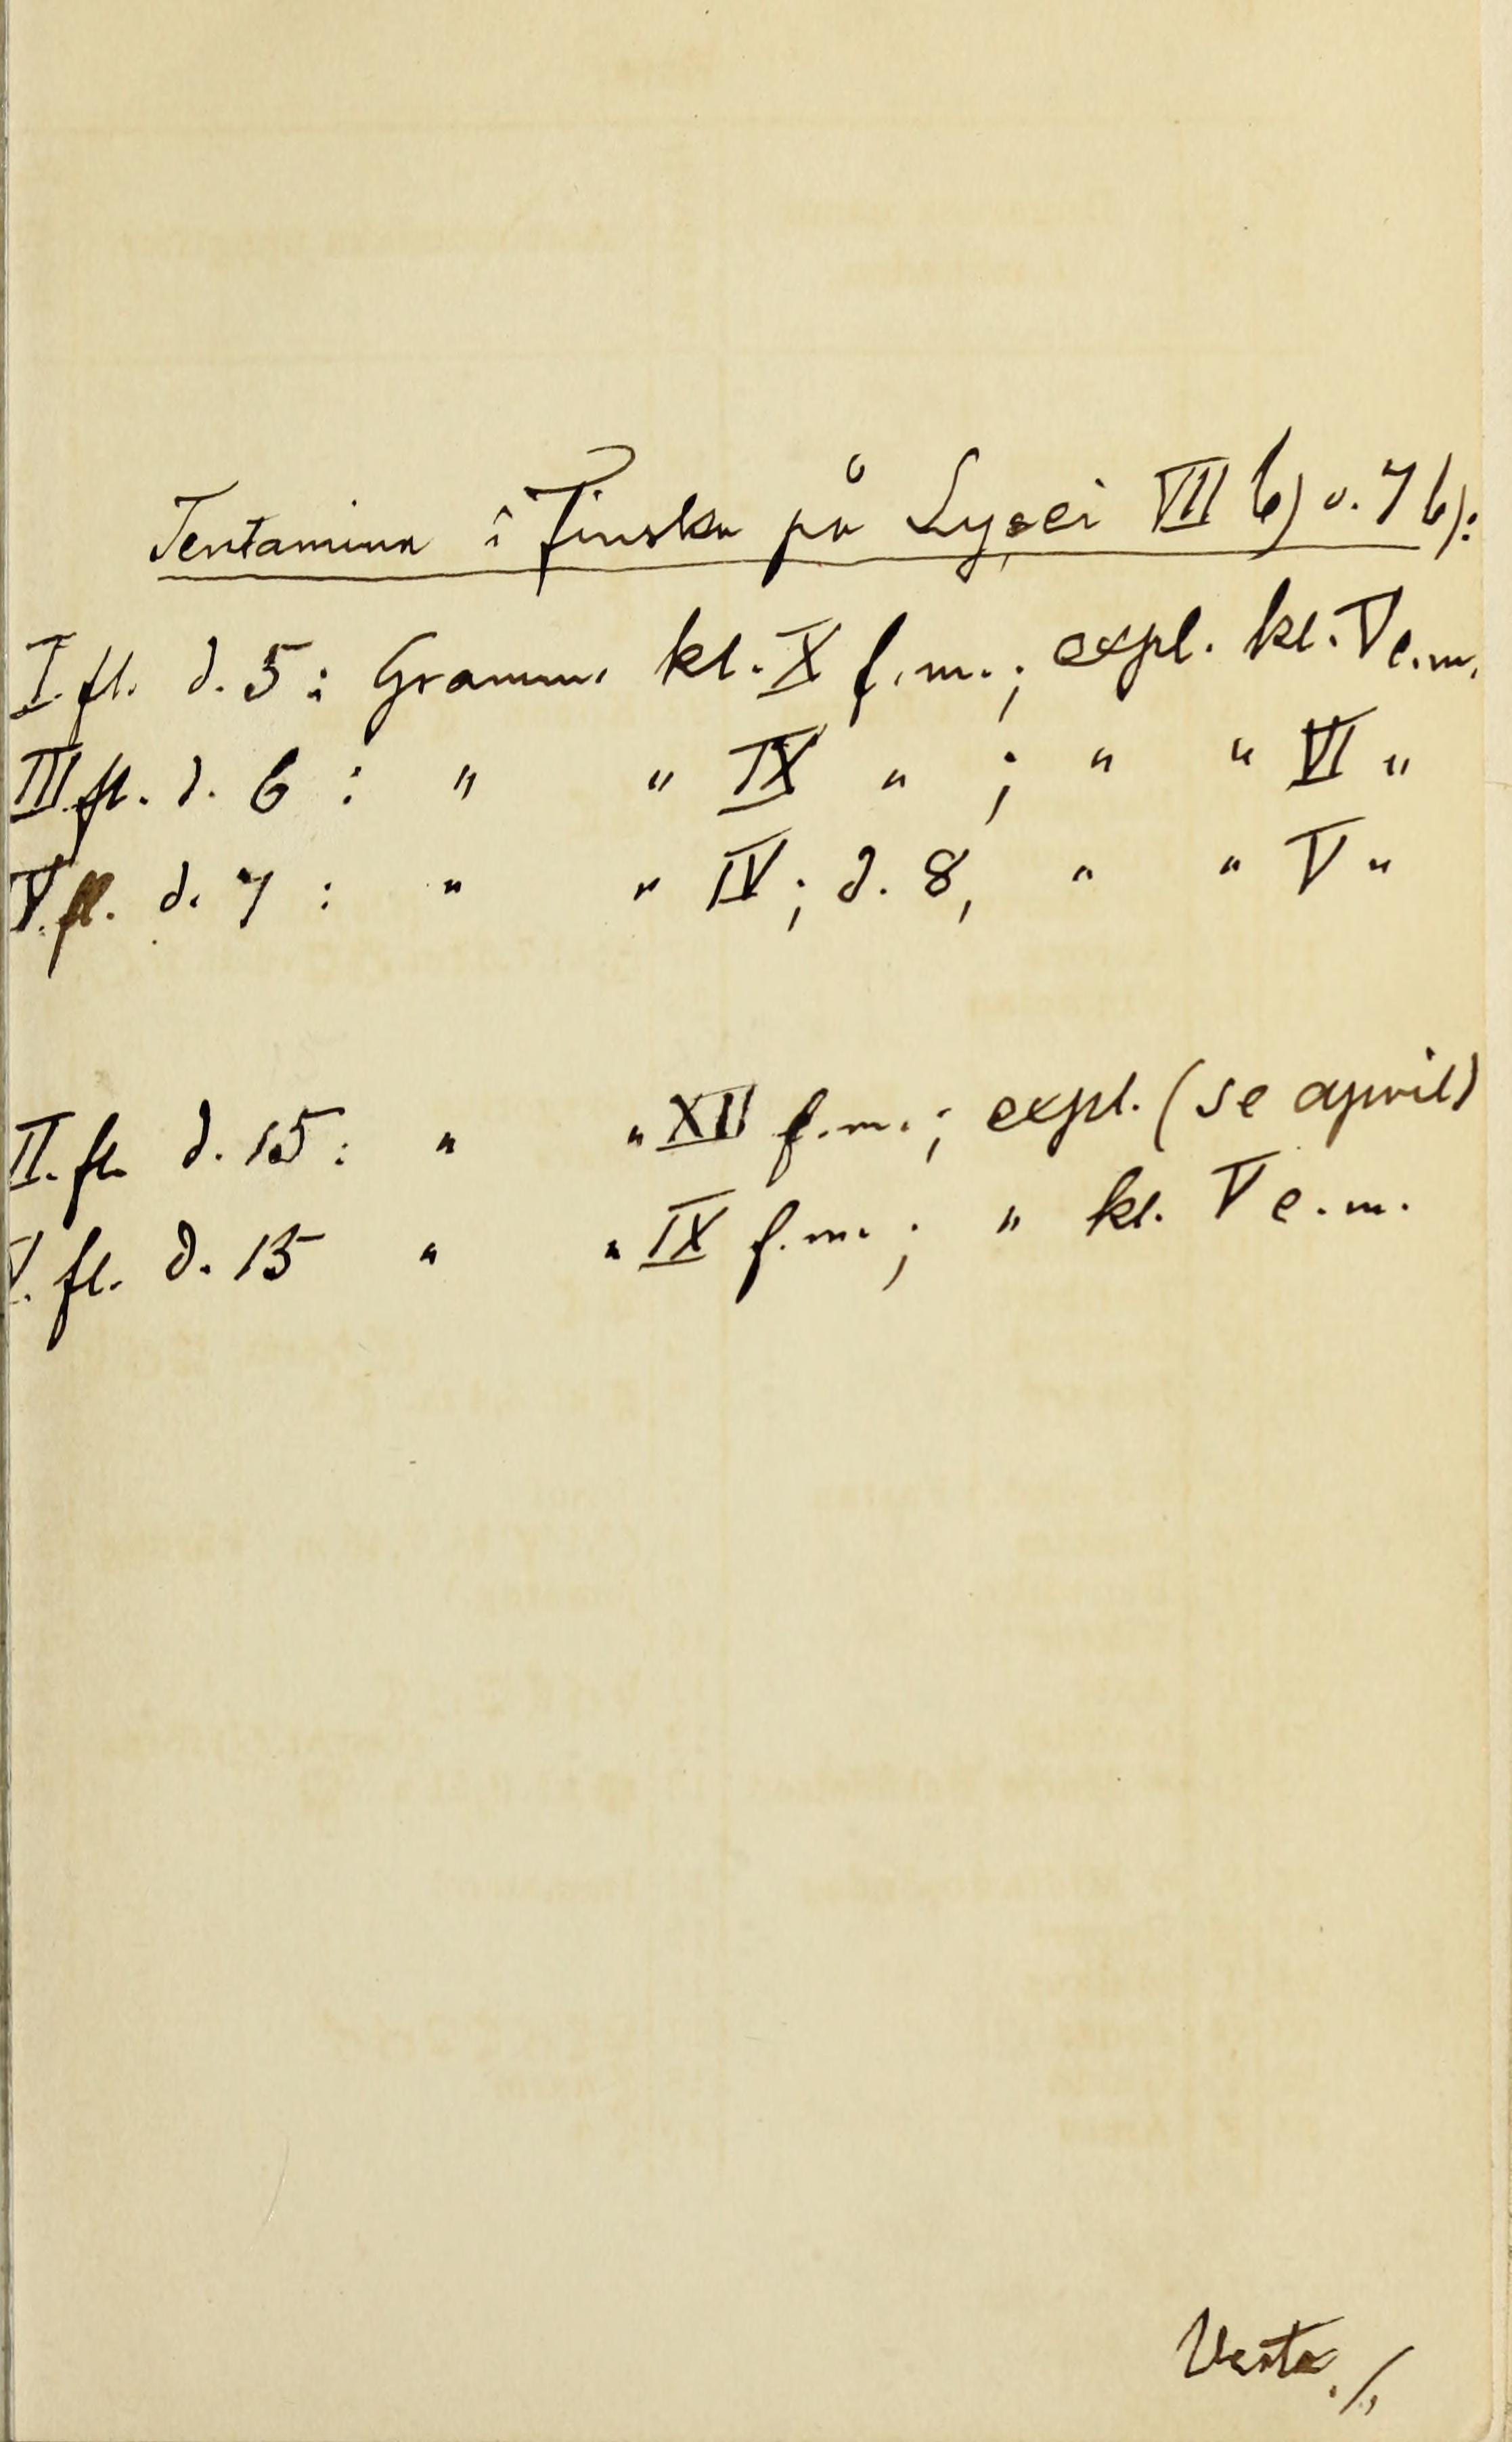 Tentamina i Finska på Lycei VII b) o. 7 b):
I. fl. d. 5: Gramm. kl. X f.m.; expl. kl. V e.m.
III. fl. d. 6: " " IX "; " " VI "
V. fl. d. 7: " " IV; d. 8, " " V "
II. fl. d. 15: " " XII f.m.; expl. (se april)
fl. d. 15 " " IX f.m.; " kl. V e.m.
Verte ./.